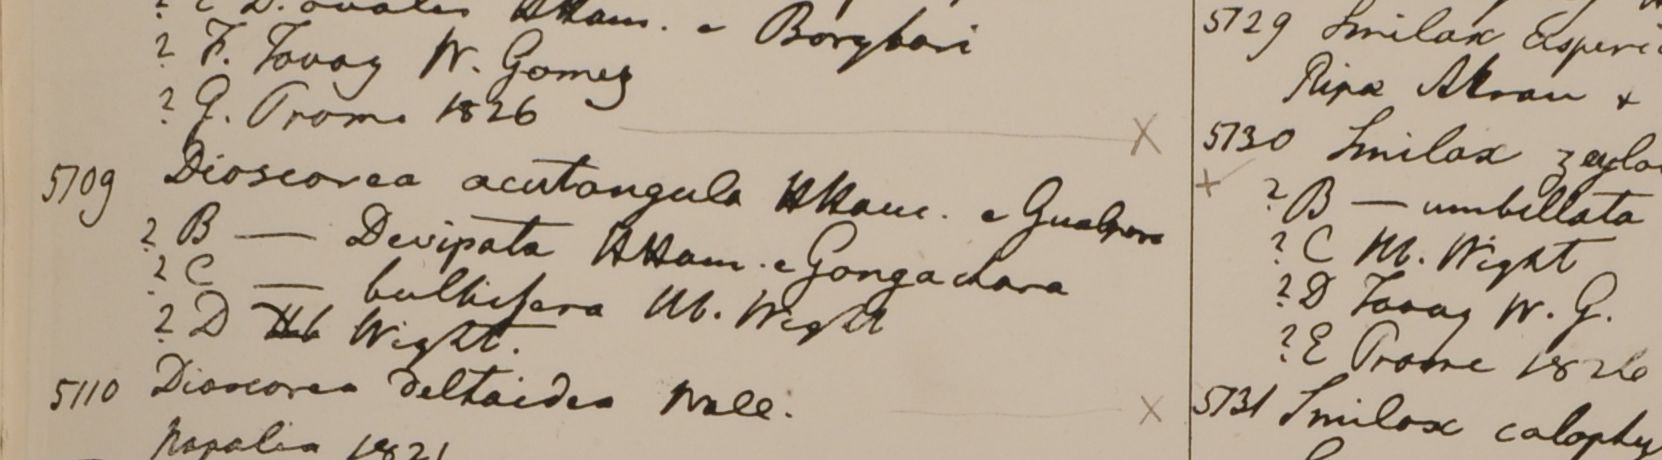 ? E D. ovalis HHam. e Borybari
? F. Tavoy W. Gomez
? G. Prome 1826
5709 Dioscorea acutangula HHam. e Gualpara
? B — Devipata HHam. e Gongachara
? C — bulbifera M. Wight
? D Hb Wight.
5110 Dioscorea deltoidea Wall.
Napalia 1821
5729 Smilax
Ripa +
5730 Smilax
? B — umbellata
? C M. Wight
? D Tavoy W. G.
? E Prome 1826
5731 Smilax